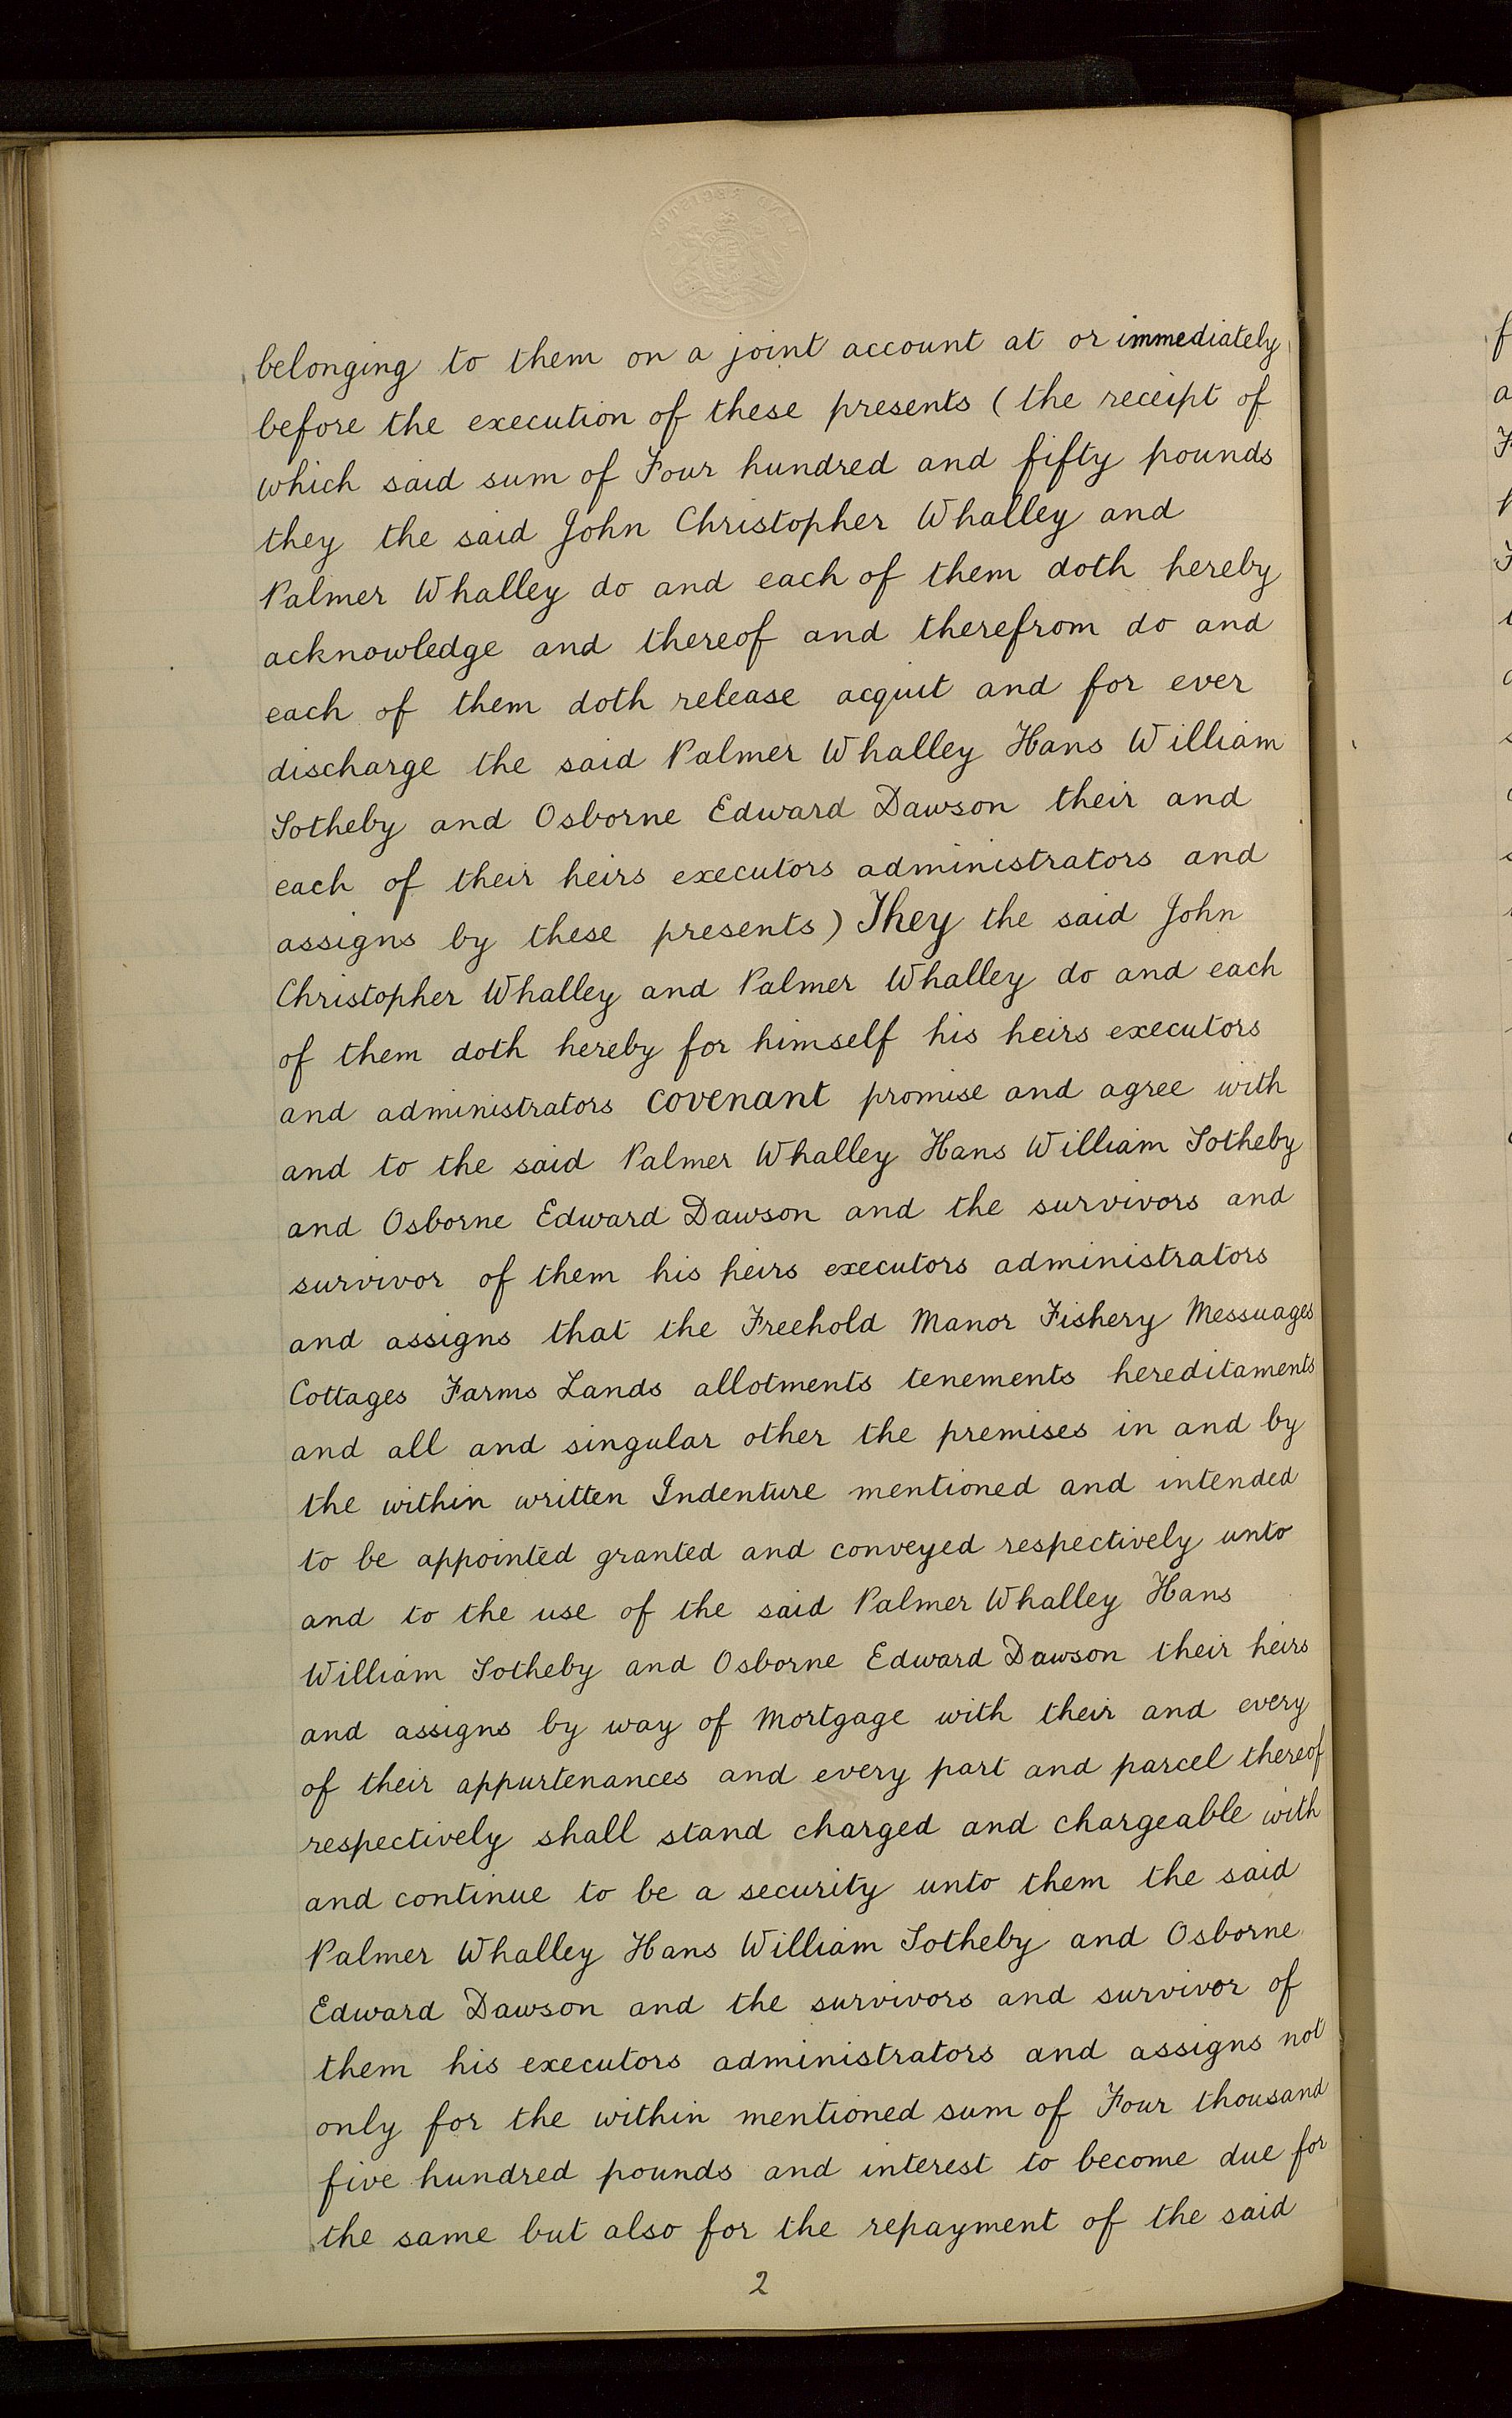 belonging to them on a joint account at or immediately
before the execution of these presents (the receipt of
which said sum of Four hundred and fifty pounds
they the said John Christopher Whalley and
Palmer Whalley do and each of them doth hereby
acknowledge and thereof and therefrom do and
each of them doth release acquit and for ever
discharge the said Palmer Whalley Hans William
Sotheby and Osborne Edward Dawson their and
each of their heirs executors administrators and
assigns by these presents) They the said John
Christopher Whalley and Palmer Whalley do and each
of them doth hereby for himself his heirs executors
and administrators covenant promise and agree with
and to the said Palmer Whalley Hans William Sotheby
and Osborne Edward Dawson and the survivors and
survivor of them his heirs executors administrators
and assigns that the Freehold Manor Fishery Messuages
Cottages Farms Lands allotments tenements hereditaments
and all and singular other the premises in and by
the within written Indenture mentioned and intended
to be appointed granted and conveyed respectively unto
and to the use of the said Palmer Whalley Hans
William Sotheby and Osborne Edward Dawson their heirs
and assigns by way of Mortgage with their and every
of their appurtenances and every part and parcel thereof
respectively shall stand charged and chargeable with
and continue to be a security unto them the said
Palmer Whalley Hans William Sotheby and Osborne
Edward Dawson and the survivors and survivor of
them his executors administrators and assigns not
only for the within mentioned sum of Four thousand
five hundred pounds and interest to become due for
the same but also for the repayment of the said
2